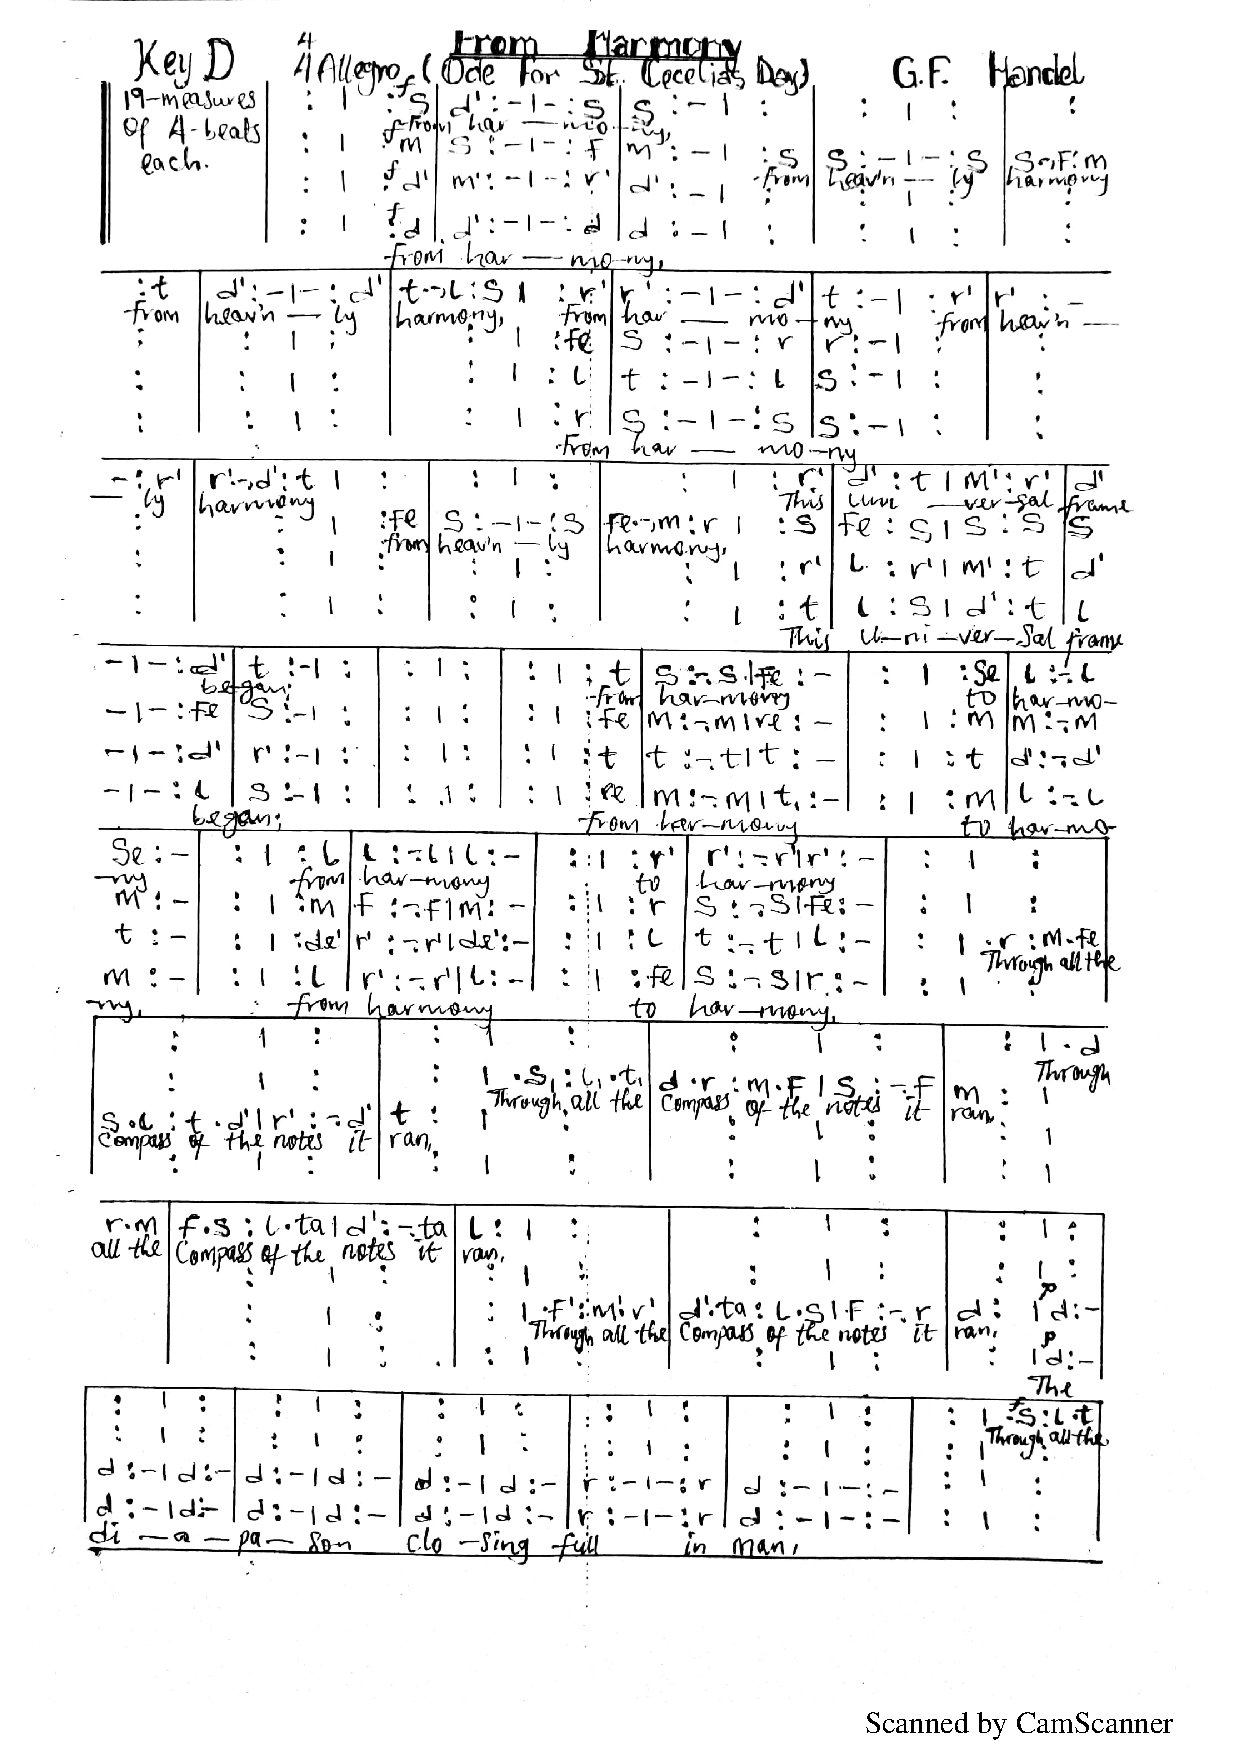 From Harmony
Key D 4/4 Allegro f (Ode For St. Cecelia's Day) G.F. Handel
19-measures of 4-beats each.
: | : S | d' : - | - : S | S : - | : | : | : | :
From har — mo — ny,
: | f : m | S : - | - : f | m : - | : S | S : - | - : S | S -, F : m
from heav'n — ly harmony
: | f : d' | m' : - | - : r' | d' : - | : | : | :
: | f : d | d' : - | - : d | d : - | : | : | : | :
from har — mo-ny,
: t | d' : - | - : d' | t -, L : S | : r' | r' : - | - : d' | t : - | : r' | r' : -
from heav'n — ly harmony, from har — mo — ny from heav'n —
: | : | : | : | : fe | S : - | - : r | r : - | : | :
: | : | : | : | : L | t : - | - : L | S : - | : | :
: | : | : | : | : r | S : - | - : S | S : - | : | :
from har — mo-ny
- : r' | r' -, d' : t | : | : | : | : | : r' | d' : t | m' : r' | d'
— ly harmony This uni — ver-sal frame
: | : fe | S : - | - : S | fe -, m : r | : S | fe : S | S : S | S
from heav'n — ly harmony,
: | : | : | : | : | : r' | L : r' | m' : t | d'
: | : | : | : | : | : t | L : S | d' : t | L
This u-ni-ver-sal frame
- | - : d' | t : - | : | : | : | : | : t | S : -, S | fe : - | : | : Se | L : -, L
began; from har-mony to har-mo-
- | - : fe | S : - | : | : | : | : | : fe | m : -, m | re : - | : | : m | m : -, m
- | - : d' | r' : - | : | : | : | : | : t | t : -, t | t : - | : | : t | d' : -, d'
- | - : L | S : - | : | : | : | : | : re | m : -, m | t, : - | : | : m | L : -, L
began; from har-mony to har-mo
Se : - | : | : L | L : -, L | L : - | : | : r' | r' : -, r' | r' : - | : | :
-ny from har-mony to har-mony
m : - | : | : m | f : -, f | m : - | : | : r | S : -, S | fe : - | : | :
t : - | : | : de' | r' : -, r' | de' : - | : | : L | t : -, t | L : - | : | . r : m . fe
Through all the
m : - | : | : L | r' : -, r' | L : - | : | : fe | S : -, S | r : - | : | :
ny, from harmony to har-mony,
: | : | : | : | : | : | : | . d
Through
: | : | : | . S, : L, . t, | d . r : m . F | S : -, F | m : |
Through all the Compass of the notes it ran,
S . L : t . d' | r' : -, d' | t : | : | : | : | : |
Compass of the notes it ran,
: | : | : | : | : | : | : |
r . m | f . s : L . ta | d' : -, ta | L : | : | : | : | : | :
all the Compass of the notes it ran,
: | : | : | : | : | : | : | :
: | : | : | . F' : m' . r' | d' . ta : L . S | F : -, r | d : | p d : -
Through all the Compass of the notes it ran,
: | : | : | : | : | : | : | p d : -
The
: | : | : | : | : | : | : | : | : | : | : | f . S : L . t
Through all the
: | : | : | : | : | : | : | : | : | : | : | :
d : - | d : - | d : - | d : - | d : - | d : - | r : - | - : r | d : - | - : - | : | :
d : - | d : - | d : - | d : - | d : - | d : - | r : - | - : r | d : - | - : - | : | :
di — a — pa — son clo — sing full in man,
Scanned by CamScanner